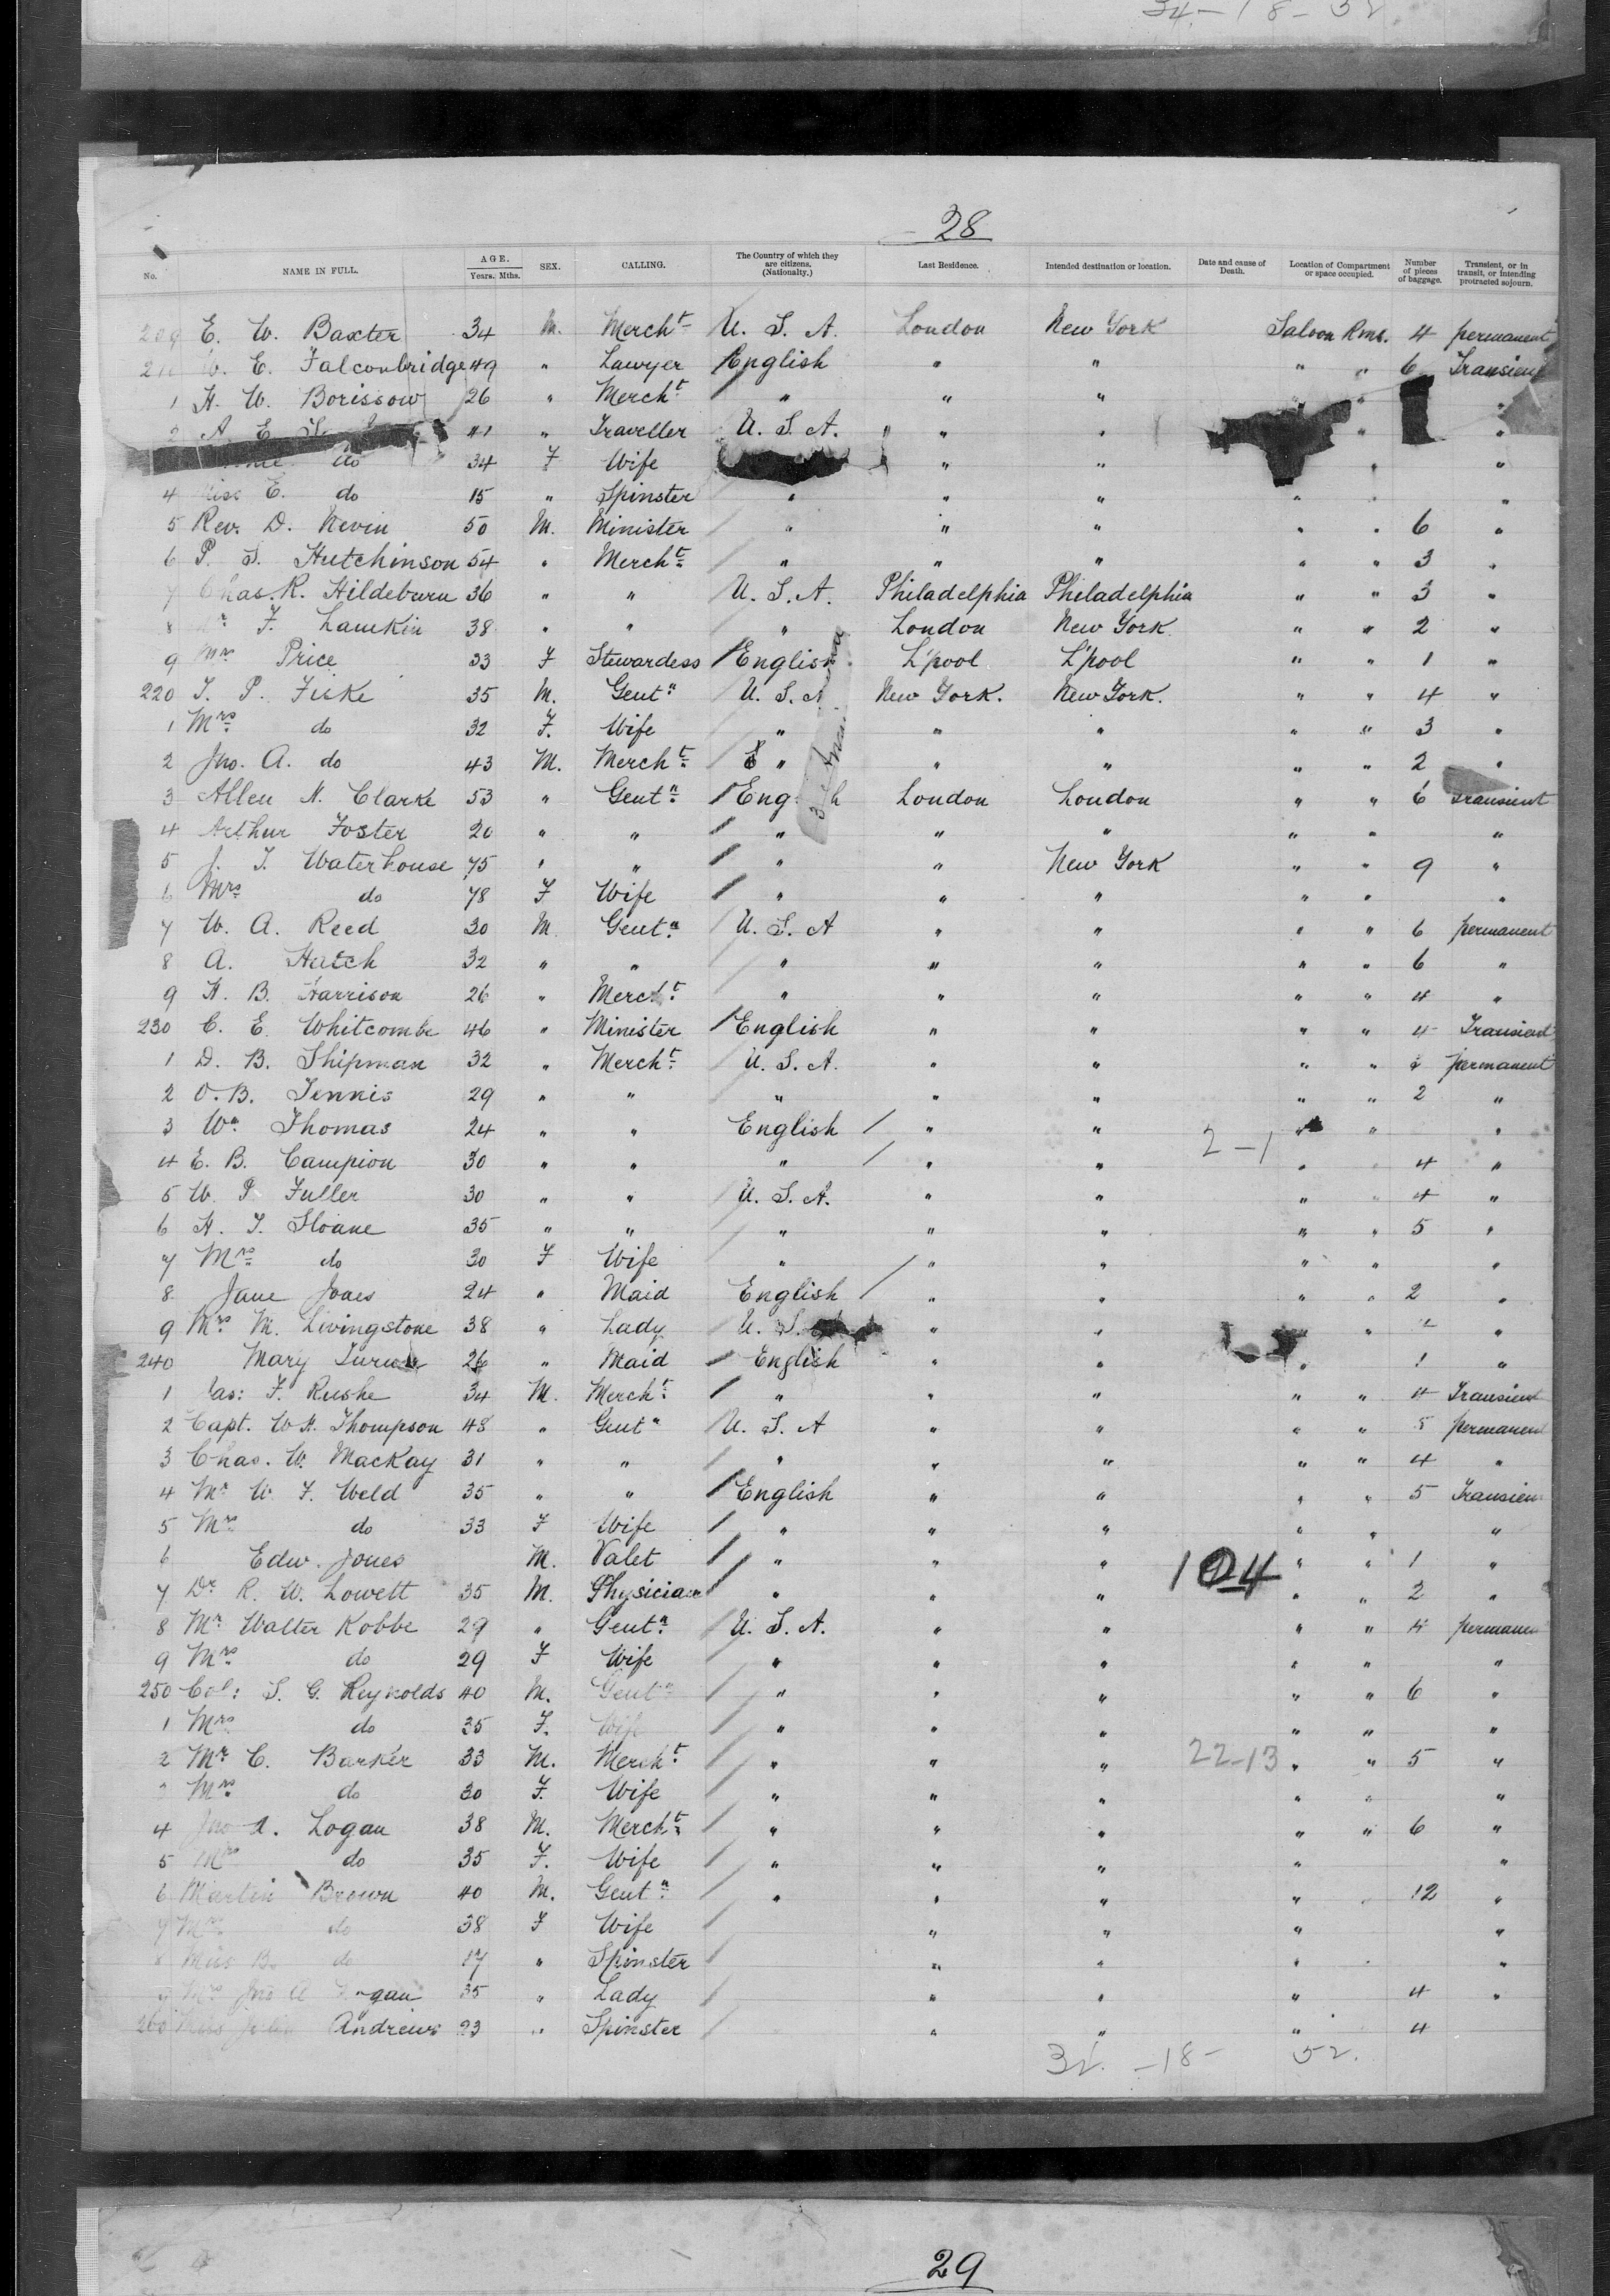 34 - 18 - 52
28
No. NAME IN FULL. AGE. Years. Mths. SEX. CALLING. The Country of which they are citizens. (Nationality.) Last Residence. Intended destination or location. Date and cause of Death. Location of Compartment or space occupied. Number of pieces of baggage. Transient, or in transit, or intending protracted sojourn.
209 E. W. Baxter 34 M. Mercht U. S. A. London New York Saloon Rms. 4 permanent
E. Falconbridge 49 " Lawyer English " " " " 6 Transient
1 H. W. Borissow 26 " Mercht " " " "
2 A. E. 41 " Traveller U. S. A. " " " "
do 34 F Wife " " " "
4 Miss E. do 15 " Spinster " " " " " "
5 Rev. D. Nevin 50 M. Minister " " " " " 6 "
6 P. S. Hutchinson 54 " Mercht " " " " " 3 "
7 Chas. R. Hildeburn 36 " " U. S. A. Philadelphia Philadelphia " " 3 "
8 F. Lamkin 38 " " " London New York " " 2 "
9 Mrs Price 33 F Stewardess English L'pool L'pool " " 1 "
220 J. P. Fiske 35 M. Gentn U. S. A New York. New York. " " 4 "
1 Mrs do 32 F. Wife " " " " " 3 "
2 Jno. A. do 43 M. Mercht " " " " " 2 "
3 Allen N. Clarke 53 " Gentn Eng h London London " " 6 Transient
4 Arthur Foster 20 " " " " " " " "
5 J. T. Waterhouse 75 " " " " New York " " 9 "
6 Mrs do 78 F Wife " " " " " "
7 W. A. Reed 30 M. Gentn U. S. A " " " " 6 permanent
8 A. Hatch 32 " " " " " " " 6 "
9 H. B. Harrison 26 " Mercht " " " " " 4 "
230 C. E. Whitcombe 46 " Minister English " " " " 4 Transient
1 D. B. Shipman 32 " Mercht U. S. A. " " " " permanent
2 O. B. Jennis 29 " " " " " " " 2 "
3 Wm Thomas 24 " " English " " 2-1 " " "
4 E. B. Campion 30 " " " " " " " 4 "
5 W. P. Fuller 30 " " U. S. A. " " " " 4 "
6 H. T. Sloane 35 " " " " " " " 5 "
7 Mrs do 30 F Wife " " " " " "
8 Jane Jones 24 " Maid English " " " " 2 "
9 Mrs M. Livingstone 38 " Lady U. S. " " " "
240 Mary 26 " Maid English " " " 1 "
1 Jas: F. Rushe 34 M. Mercht " " " " " 4 Transient
2 Capt. W H. Thompson 48 " Gentn U. S. A " " " " 5 permanent
3 Chas. W. MacKay 31 " " " " " " " 4 "
4 Mr W. F. Weld 35 " " English " " " " 5 Transient
5 Mrs do 33 F Wife " " " " " "
6 Edw. Jones M. Valet " " " 104 " " 1 "
7 Dr R. W. Lowett 35 M. Physician " " " " " 2 "
8 Mr Walter Kobbe 29 " Gentn U. S. A. " " " " 4 permanen
9 Mrs do 29 F Wife " " " " " "
250 Col: S. G. Reynolds 40 M. Gentn " " " " " 6 "
1 Mrs do 35 F. Wife " " " " " "
2 Mr C. Barker 33 M. Mercht " " " 22-13 " " 5 "
3 Mrs do 30 F. Wife " " " " " "
4 Jno A. Logan 38 M. Mercht " " " " " 6 "
5 Mrs do 35 F. Wife " " " " "
6 Martin Brown 40 M. Gentn " " " " " 12 "
7 Mrs do 38 F Wife " " " "
8 Miss B. do 17 " Spinster " " " "
9 Mrs Jno A Logan 35 " Lady " " " 4 "
260 Miss Julia Andrews 23 " Spinster " " " 4
34. - 18 - 52.
29